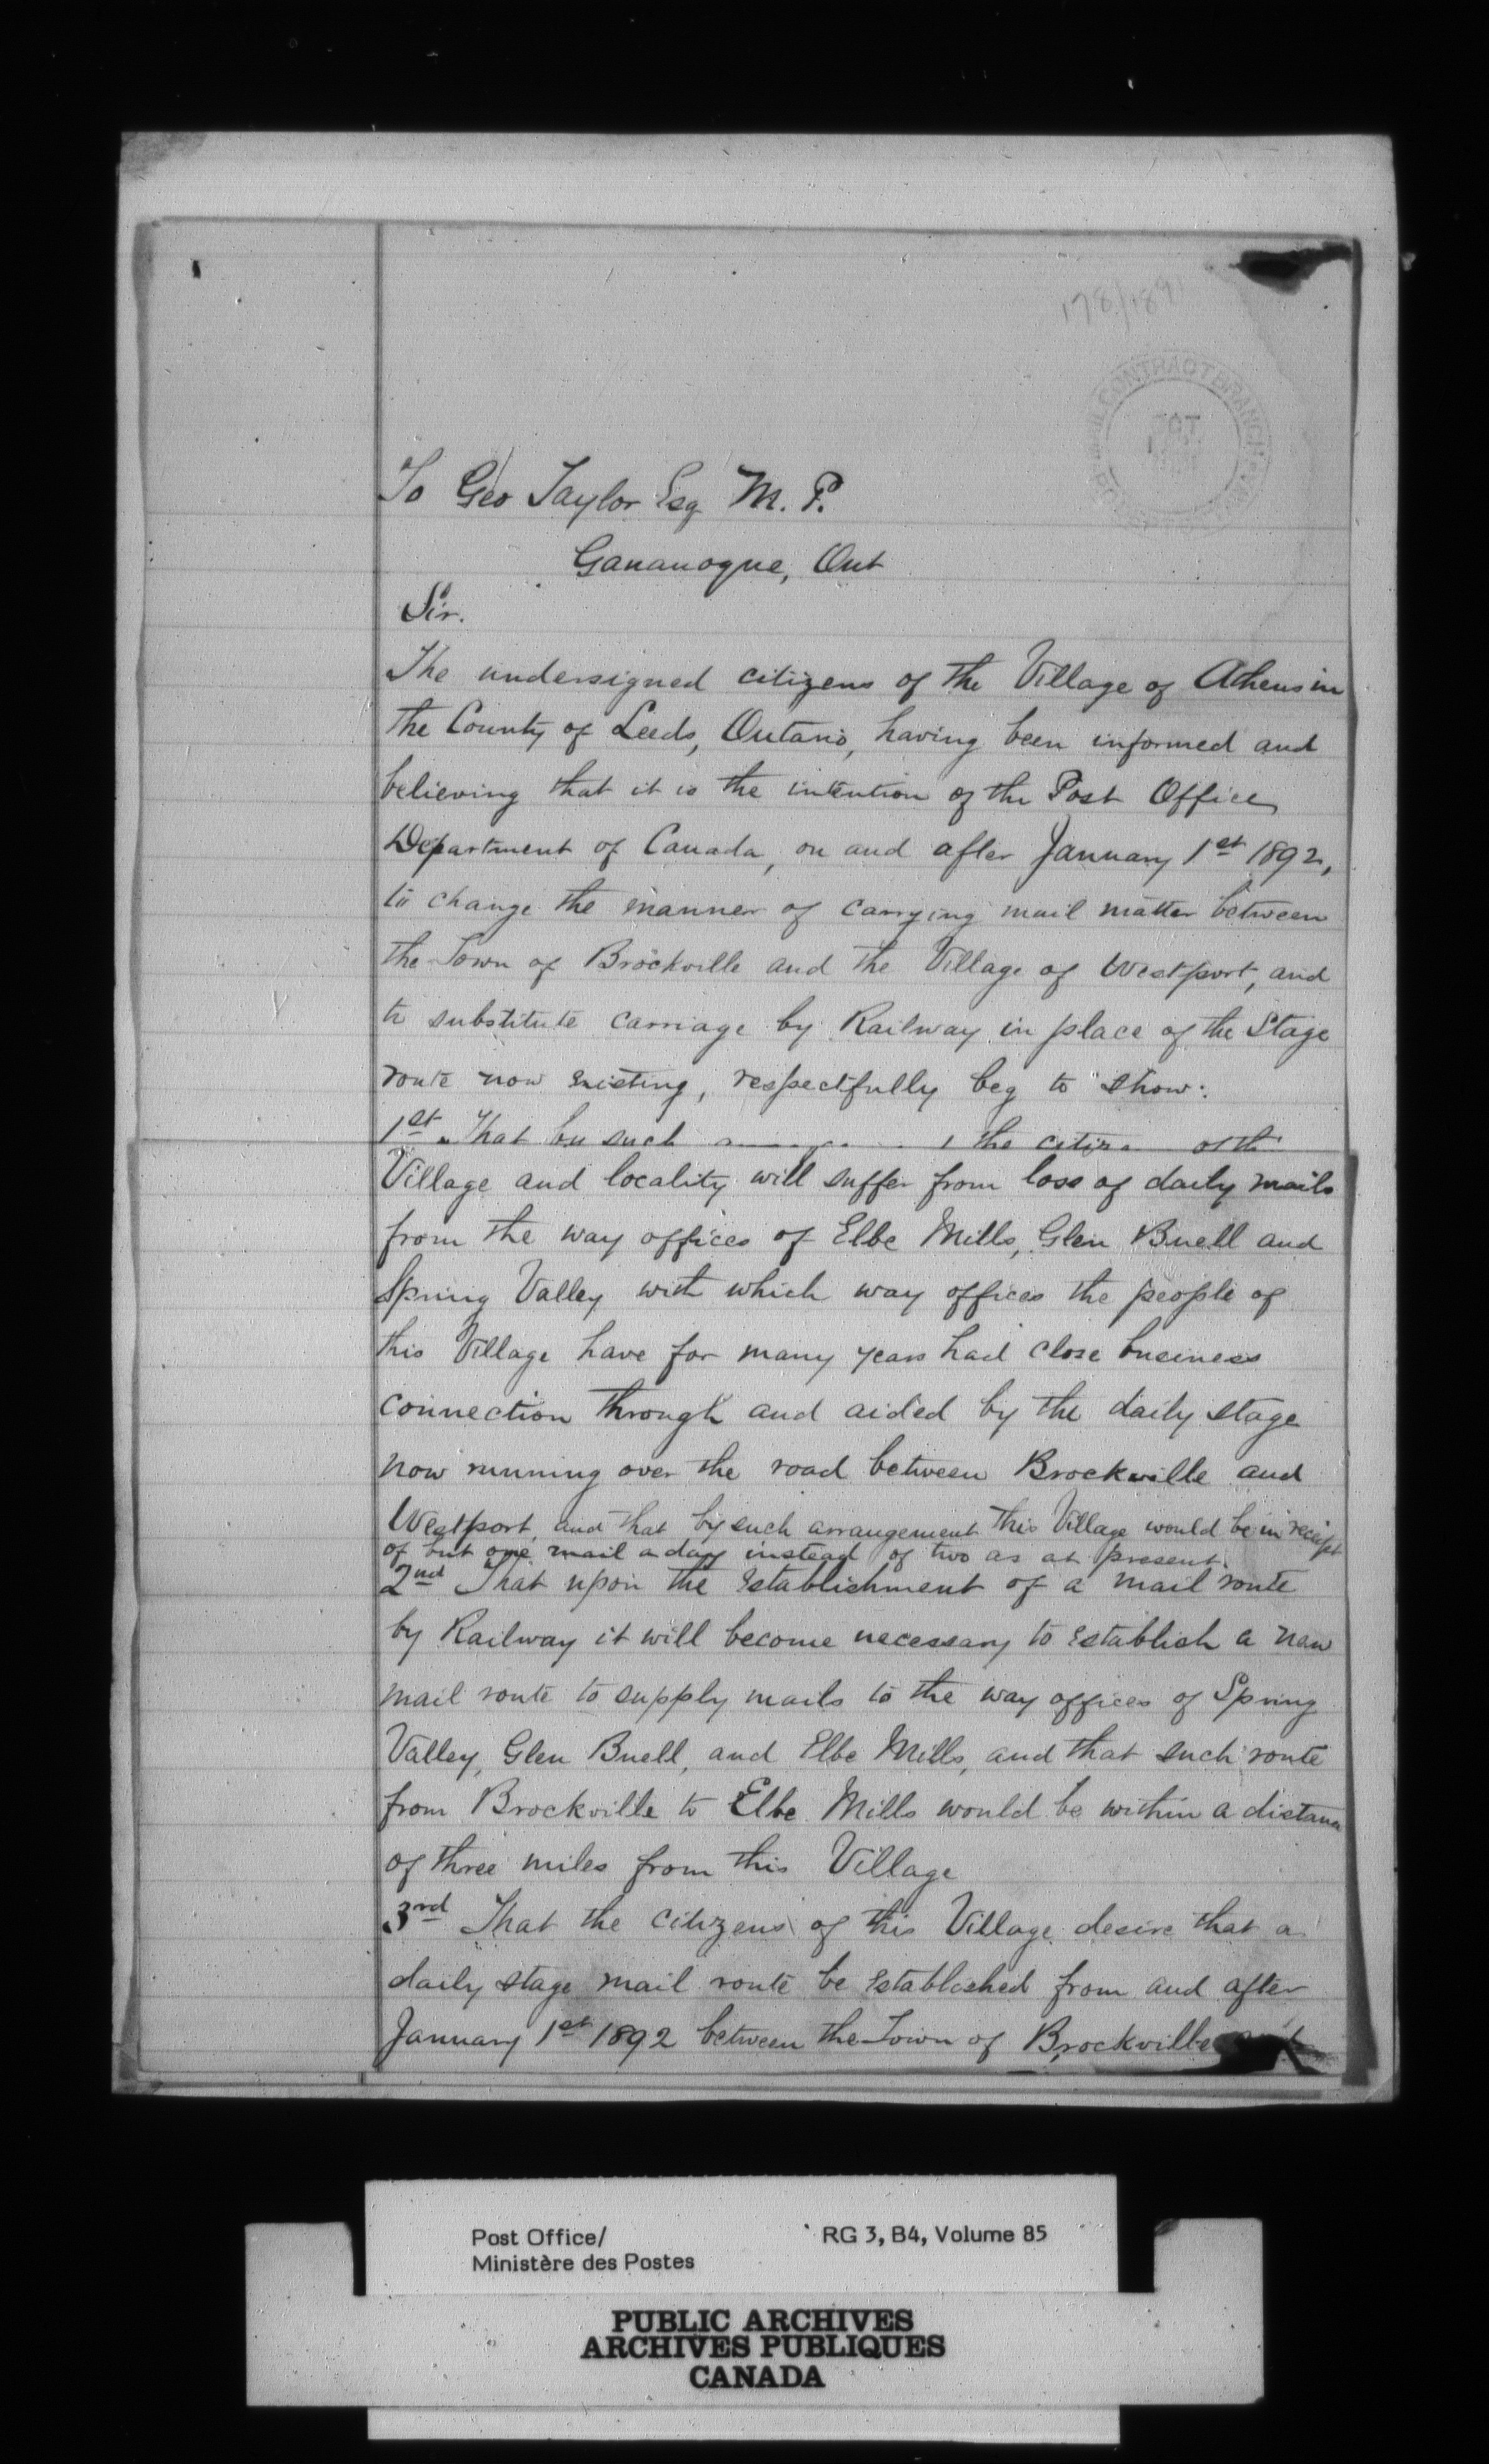 178/1891
MAIL CONTRACT BRANCH
OCT
To Geo Taylor Esq M. P.
Gananoque, Ont
Sir.
The undersigned citizens of the Village of Athens in
the County of Leeds, Ontario, having been informed and
believing that it is the intention of the Post Office
Department of Canada, on and after January 1st 1892,
to change the manner of carrying mail matter between
the Town of Brockville and the Village of Westport, and
to substitute carriage by Railway in place of the Stage
route now existing, respectfully beg to show:
1st. That by such the of the
Village and locality will suffer from loss of daily mails
from the way offices of Elbe Mills, Glen Buell and
Spring Valley with which way offices the people of
this Village have for many years had close business
connection through and aided by the daily stage
now running over the road between Brockville and
Westport, and that by such arrangement this Village would be in receipt
of but one mail a day instead of two as at present.
2nd That upon the establishment of a mail route
by Railway it will become necessary to establish a new
mail route to supply mails to the way offices of Spring
Valley, Glen Buell, and Elbe Mills, and that such route
from Brockville to Elbe Mills would be within a distance
of three miles from this Village
3rd That the citizens of this Village desire that a
daily stage mail route be established from and after
January 1st 1892 between the Town of Brockville
Post Office/
Ministère des Postes
RG 3, B4, Volume 85
PUBLIC ARCHIVES
ARCHIVES PUBLIQUES
CANADA